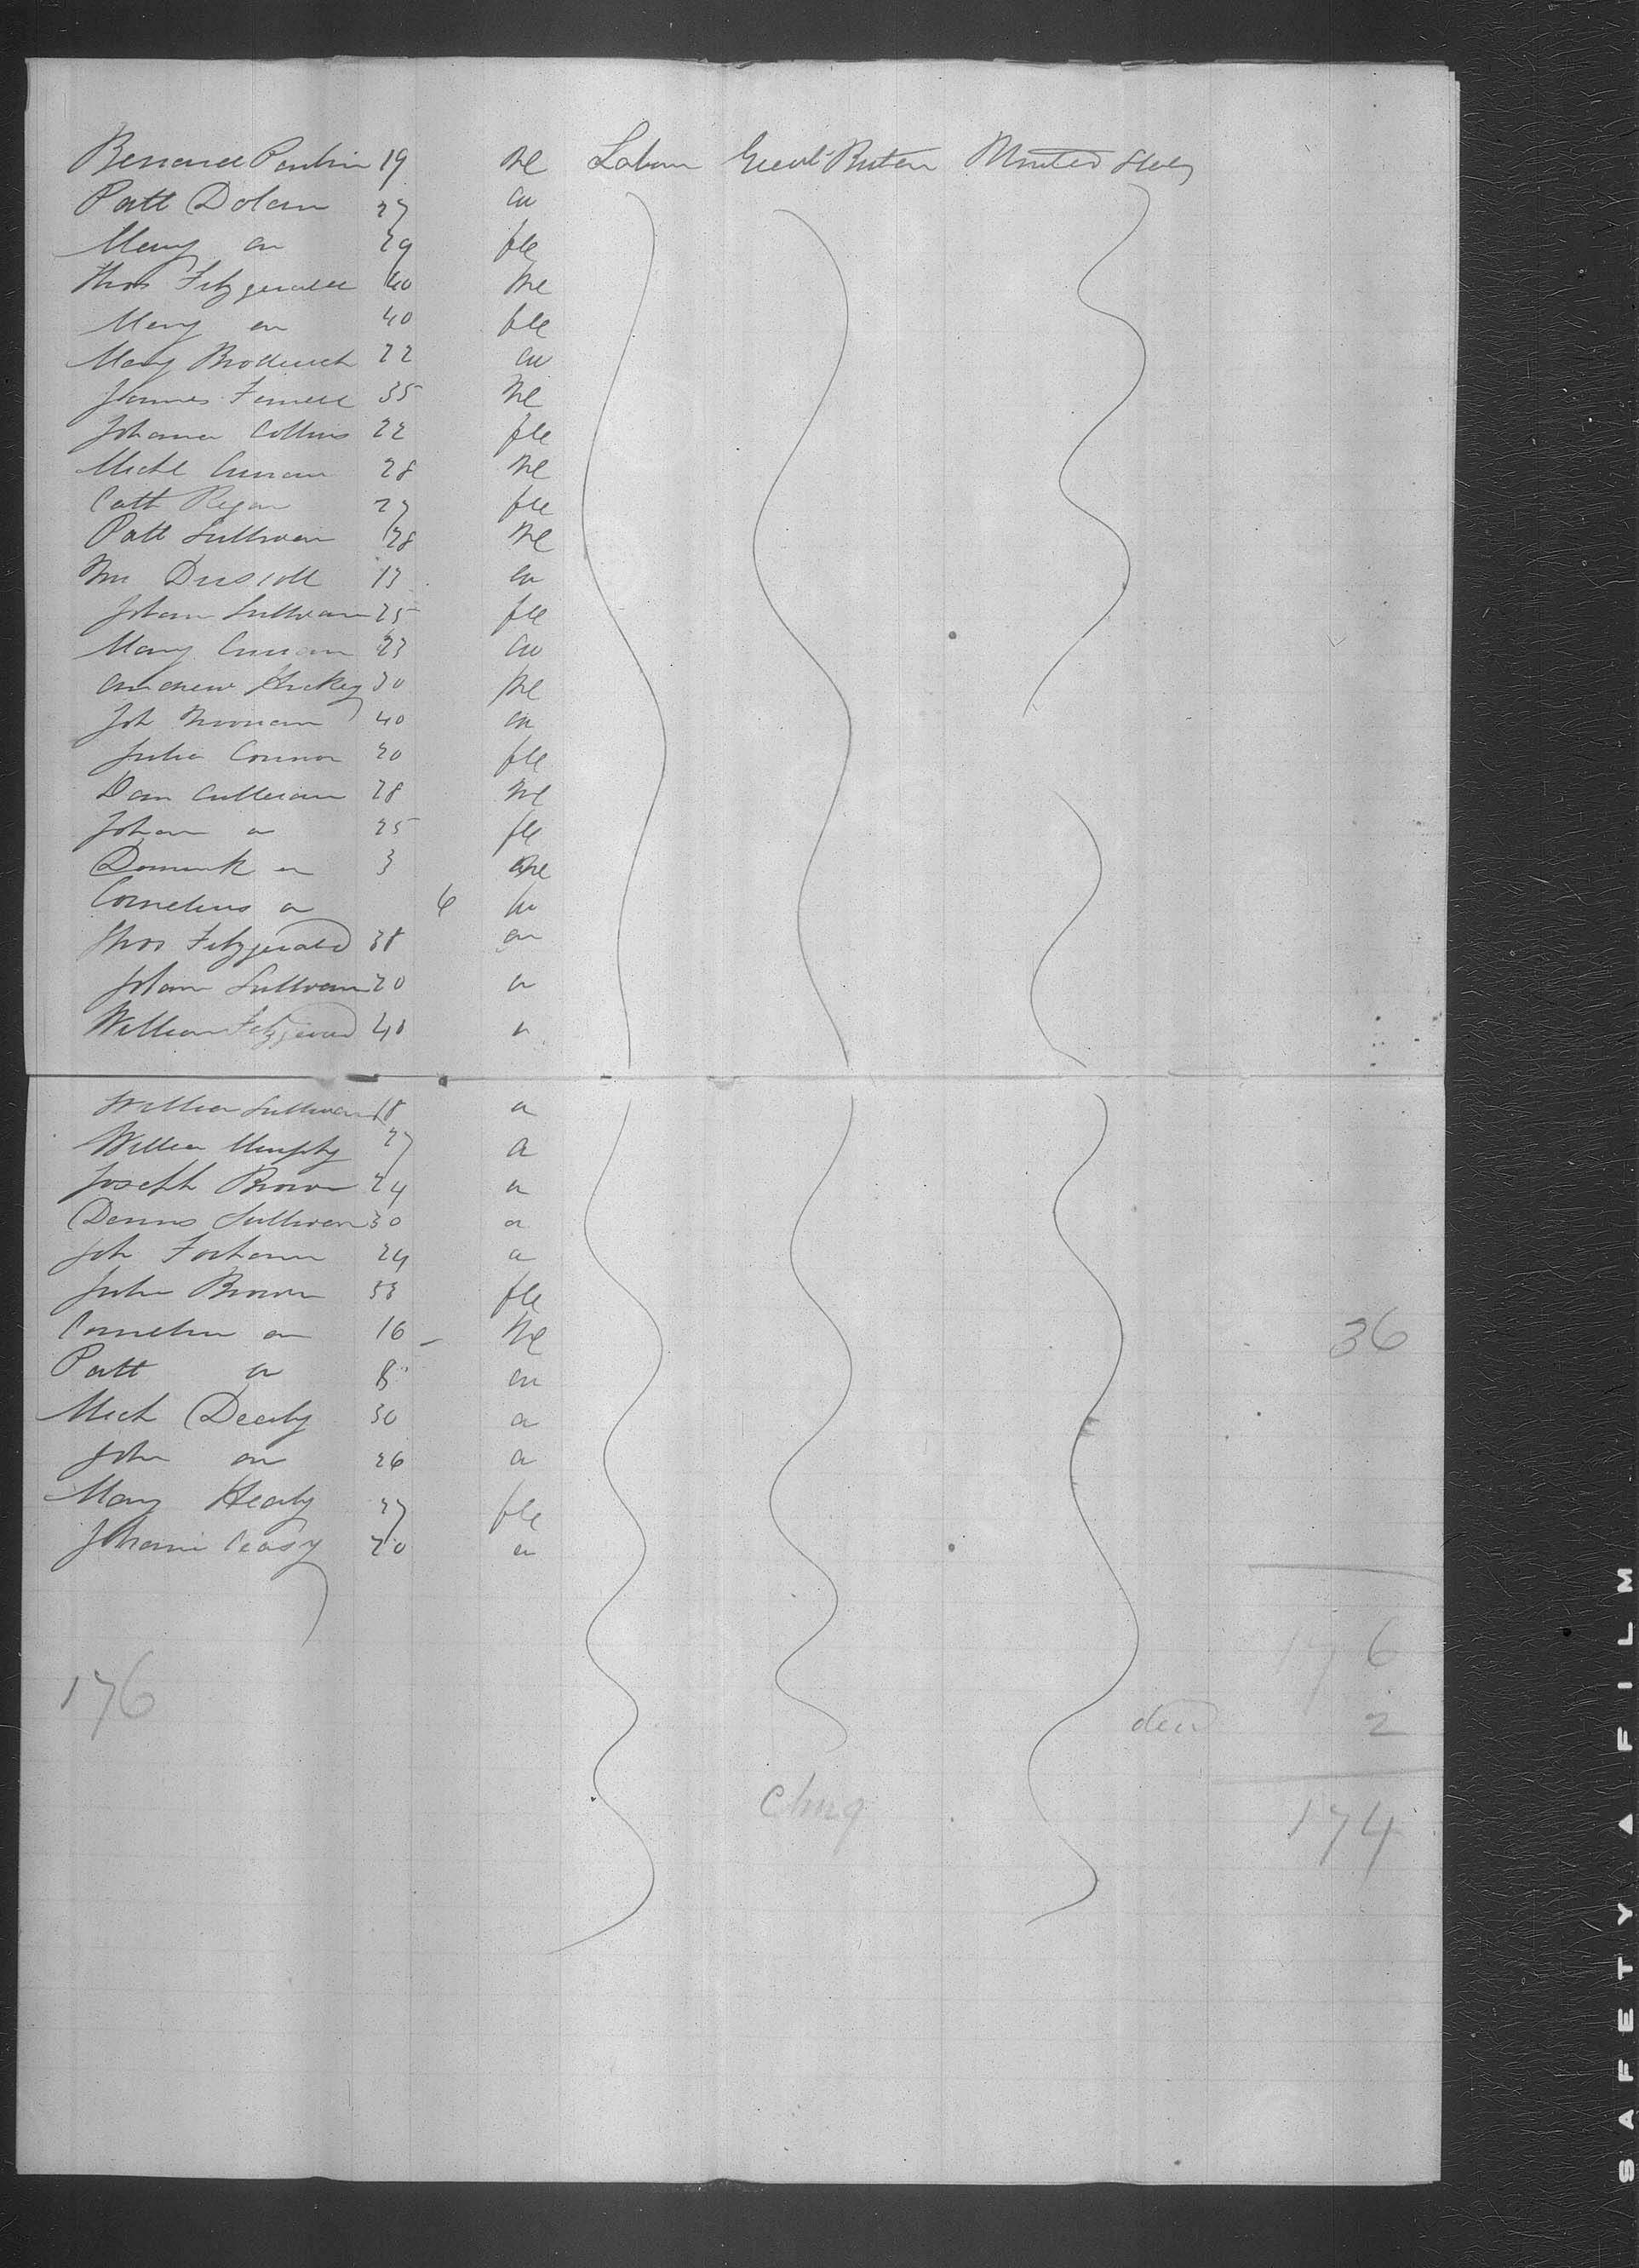 Bernard 19 Me Labour Great Britan United States
Patt Dolan 27 do
Mary do 29 fle
Thos Fitzgerald 40 Me
Mary do 40 fle
Mary Broderick 22 do
James Ferrell 35 Me
Johana Collins 22 fle
Michl Curran 28 Me
Cath Regan 27 fle
Patt Sullivan 28 Me
Wm Driscoll 13 do
Johan Sullivan 25 fle
Mary Curran 23 do
Andrew Hickey 30 Me
Joh Noonan 40 do
Julia Connor 20 fle
Dan Cullinan 28 Me
Johan do 25 fle
Dominick do 3 Me
Cornelius do 6 do
Thos Fitzgerald 38 do
Johan Sullivan 20 do
William Fitzgerald 40 do
William Sullivan 18 do
William Murphy 27 do
Joseph Brown 24 do
Dennis Sullivan 30 do
Joh 24 do
Julia Brown 33 fle
Cornelius do 16 Me 36
Patt do 8 do
Mich Dealy 30 do
John do 26 do
Mary Healy 27 fle
Johana Casy 20 do
176
176
ded 2
174
SAFETY A FILM